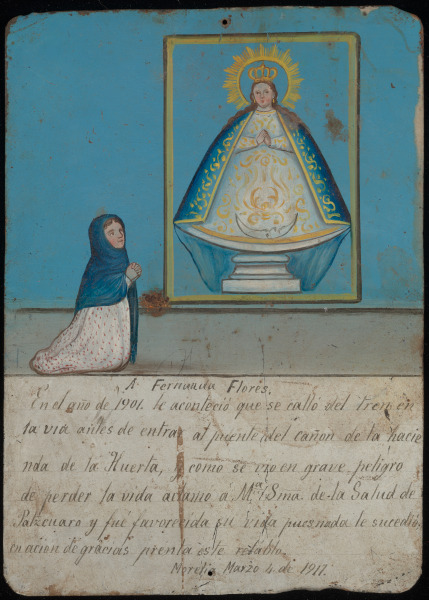 A Fernanda Flores,
En el año de 1901. le aconteció que se calló del tren en
la via antes de entrar al puente del cañon de la hacie
nda de la Huerta, y como se vio en grave peligro
de perder la vida aclamo á Mª. Sma. de la Salud de
Patzcuaro y fué favorecida su vida pues nada le sucedió.
en acion de gracias prenta este retablo.
Morelia Marzo 4 de 1917.